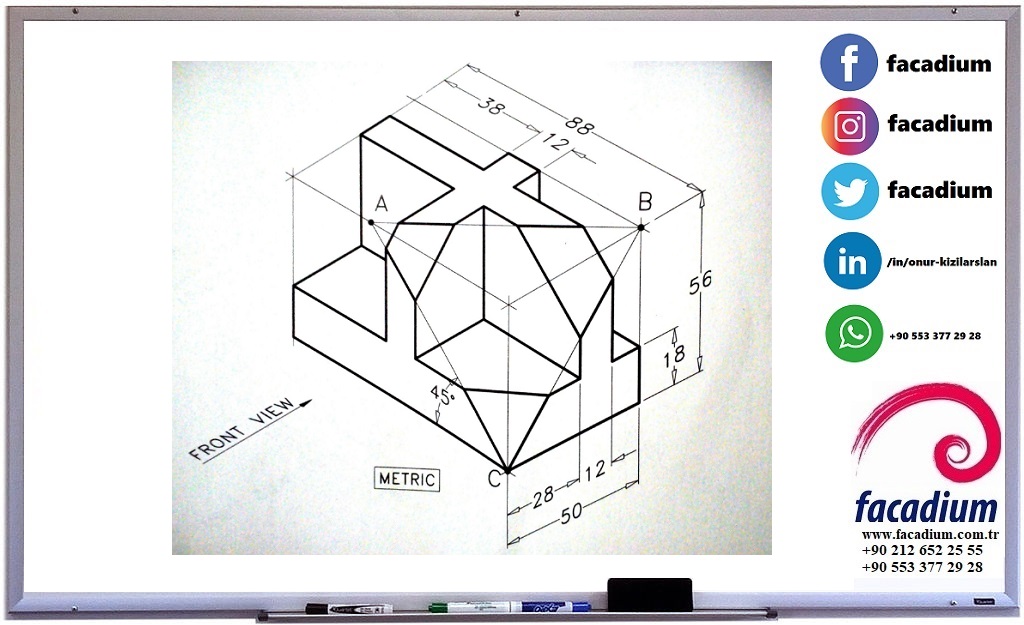 38
88
12
A
B
56
18
45°
FRONT VIEW
METRIC
C
28
12
50
facadium
facadium
facadium
/in/onur-kizilarslan
+90 553 377 29 28
facadium
www.facadium.com.tr
+90 212 652 25 55
+90 553 377 29 28